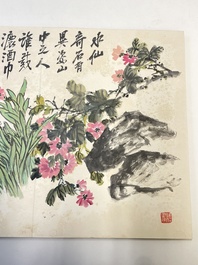 水仙
奇石有
異姿山
中之人
誰武
漉酒巾